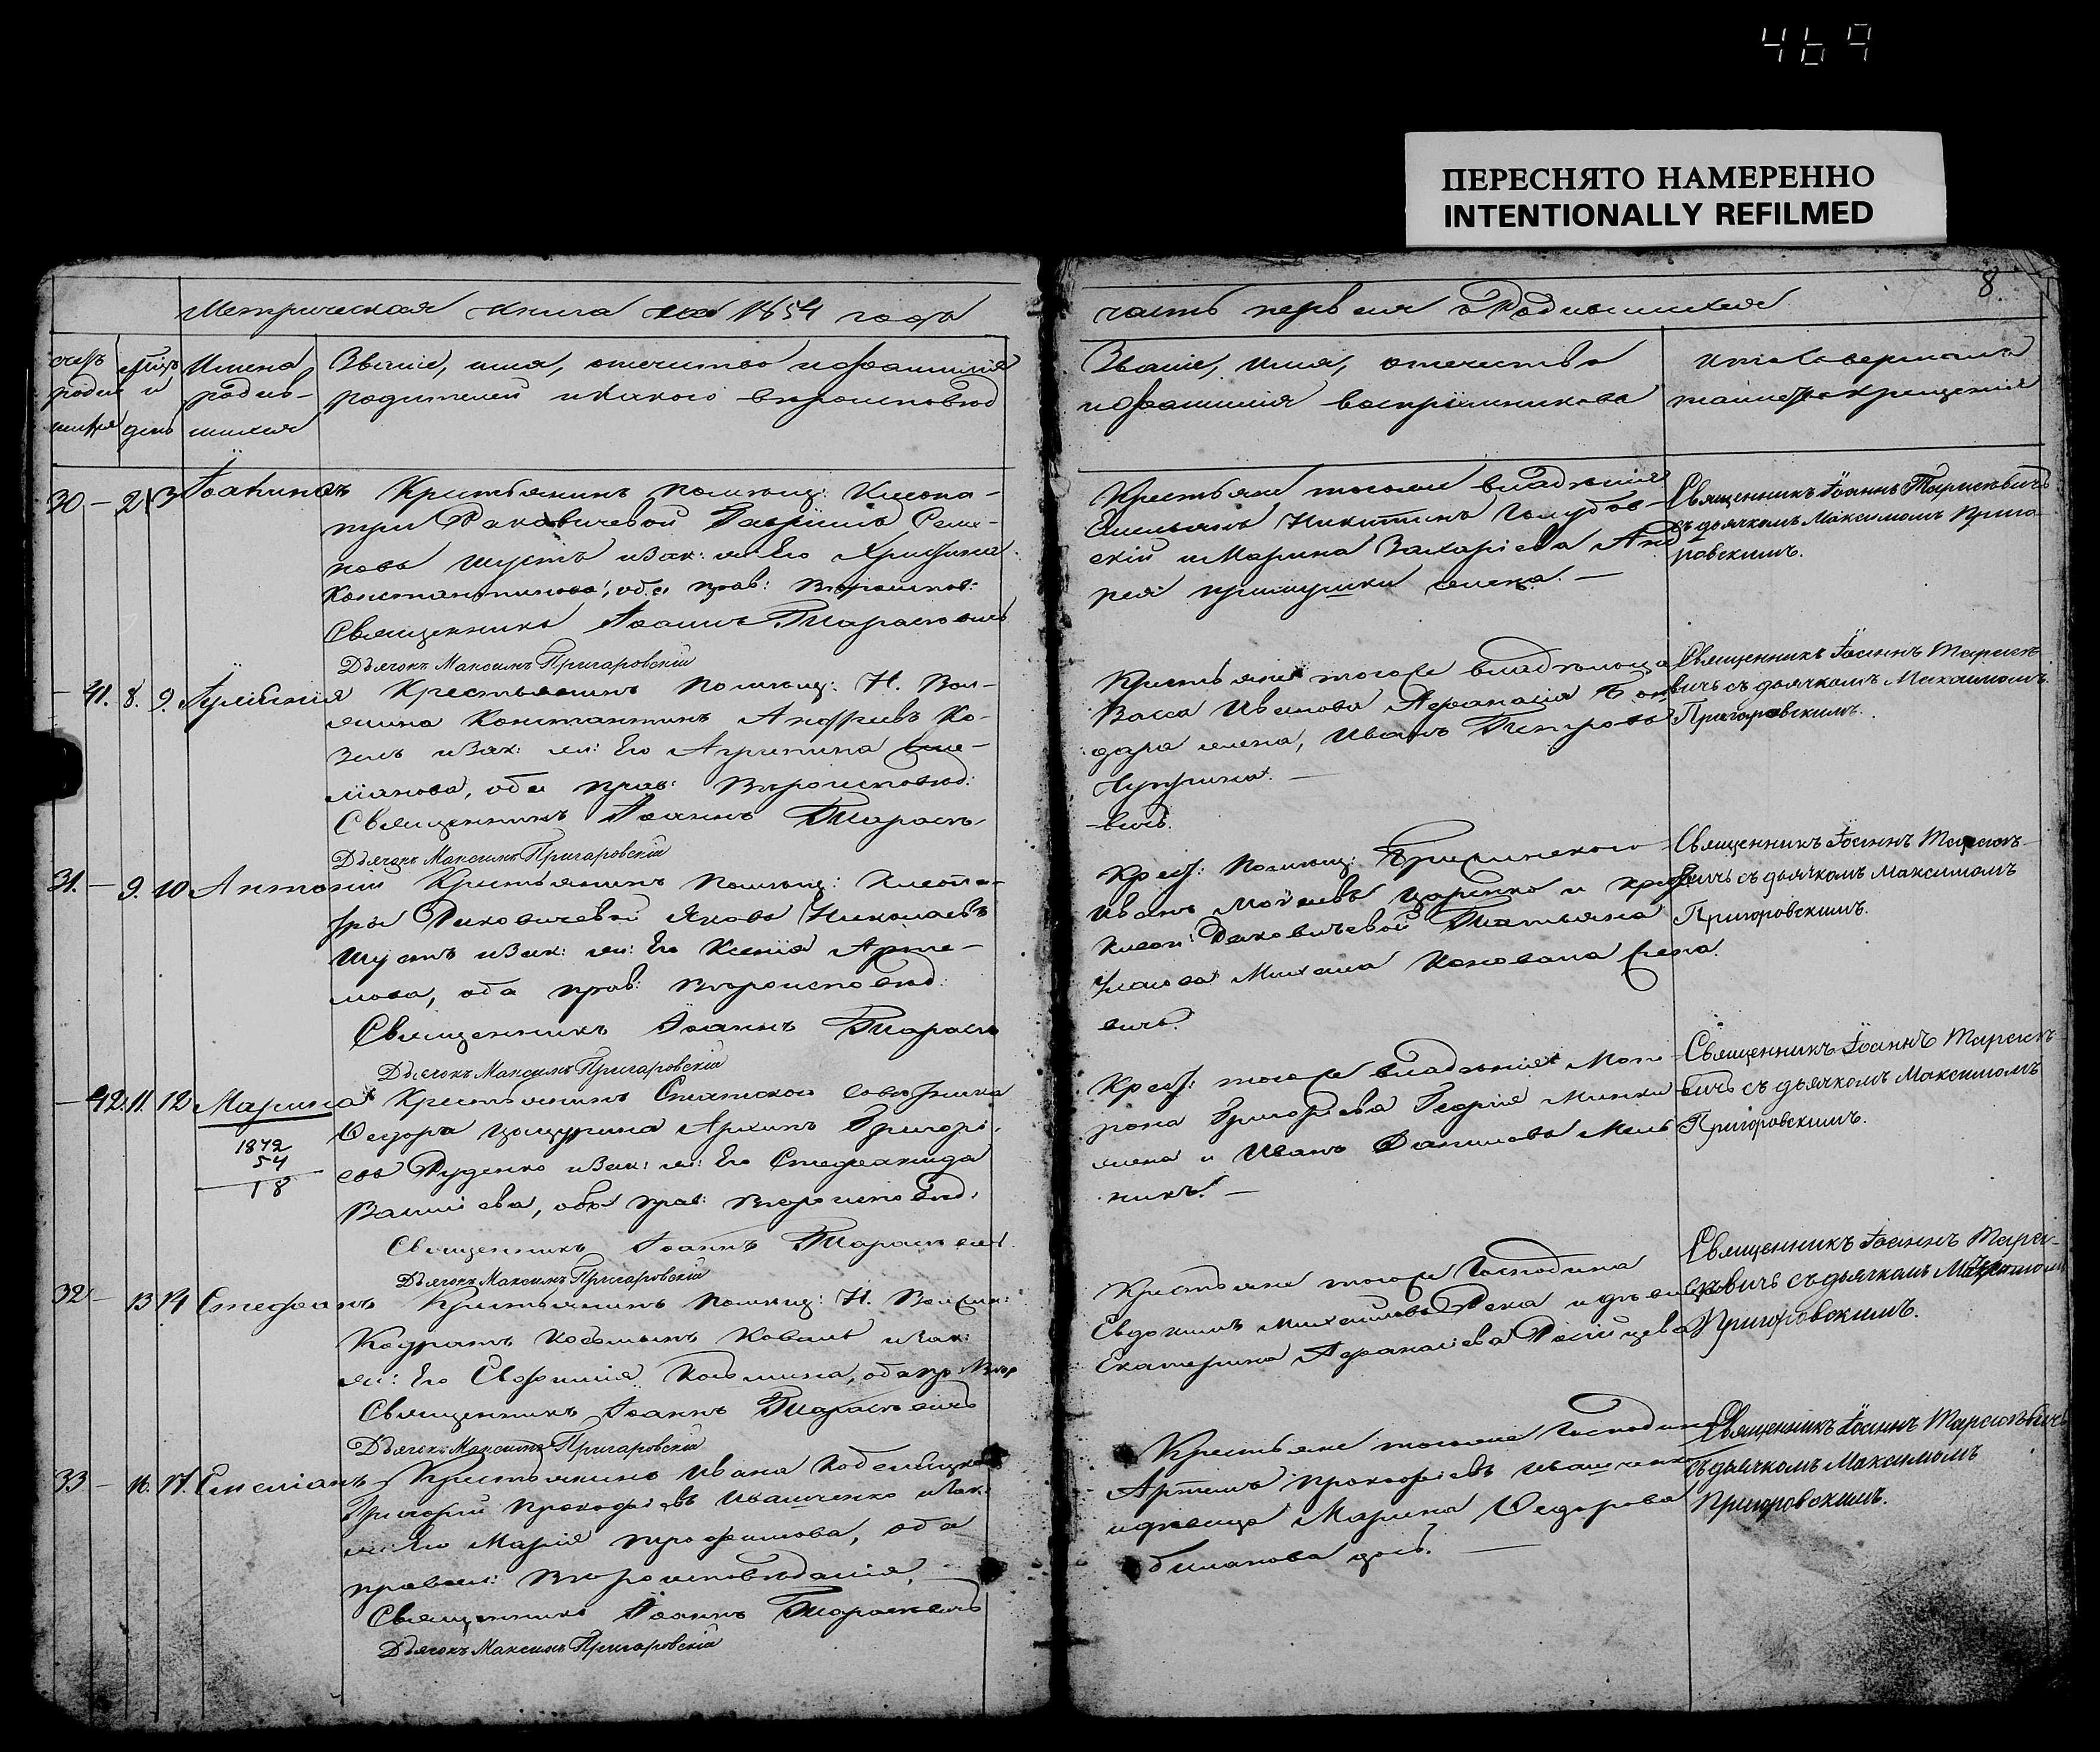 469
ПЕРЕСНЯТО НАМЕРЕННО
INTENTIONALLY REFILMED
8
Метрическая книга на 1854 годъ
часть первая о Родившихся
Имена родив-
шихся
день
Званіе, имя, отечество и фамилія
родителей и какого вероисповед
Званіе, имя, отечество
и фамилія воспріемниковъ
кто совершалъ
таинство крещенія
30 – 2 3 Іоакимъ Крестьянинъ помещ: Клеопа-
тры Раковичевой Гавріилъ Семе-
новъ Шустъ и зак: же: Его Христина
Константинова, оба прав: вероиспов:
Священникъ Іоаннъ Тарасевичъ
Дьячокъ Максимъ Пригаровскій
Крестьяне тогоже владенія
Емельянъ Никитинъ Голубов-
скій и Марина Захаріева Анд
рея жена. –
Священникъ Іоаннъ Тарасевичъ
съ дьячкомъ Максимомъ Приго-
ровскимъ.
– 41. 8. 9. Крестьянинъ помещ: Н. Вол-
Константинъ Андреевъ Ко-
зелъ и зак: же: Его Агрипина Еме-
ліянова, оба прав: вероисповед:
Священникъ Іоаннъ Тарасе-
вичъ.
Дьячокъ Максимъ Пригаровскій
Крестьяне тогоже
Васса Иванова Афанасія Бон-
даря жена, Иванъ Петровъ
Чуприна. –
Священникъ Іоаннъ Тарасе-
вичъ съ дьячкомъ Максимомъ
Пригоровскимъ.
31. – 9. 10 Антоній Крестьянинъ помещ: Клеопа-
тры Раковичевой Яковъ Николаевъ
Шустъ и зак: же: Его Ксенія Арте-
мова, оба прав: вероисповед:
Священникъ Іоаннъ Тарасе
вичъ.
Дьячокъ Максимъ Пригаровскій
Крест: помещ:
Иванъ Моѵсеевъ Царенко и крест:
Клеоп: Раковичевой Татьяна
Михаила Коновала жена.
Священникъ Іоаннъ Тарасе-
вичъ съ дьячкомъ Максимомъ
Пригоровскимъ.
– 42. 11. 12 Марина Крестьянинъ Статского советника
Федора Архипъ Григорі-
евъ Руденко и зак: же: Его Стефанида
Василіева, оба прав: вероисповед:
1872
54
18
Священникъ Іоаннъ Тарасевичъ
Дьячокъ Максимъ Пригаровскій
Крест: тогоже владенія Мат-
рона Григоріева Георгія Минки
жена и Иванъ Даниловъ Мель-
никъ. –
Священникъ Іоаннъ Тарасе-
вичъ съ дьячкомъ Максимомъ
Пригоровскимъ.
32 – 13 14 Стефанъ Крестьянинъ помещ: Н.
Кодратъ Косьминъ Коваль и зак:
же: Его Евфимія Косьмина, оба пр. Вер
Священникъ Іоаннъ Тарасевичъ
Дьячокъ Максимъ Пригаровскій
Крестьяне тогоже Господина
Евдокимъ Михайловъ Река и девица
Екатерина Афанасіева
Священникъ Іоаннъ Тара-
севичъ съ дьячкомъ Максимомъ
Пригоровскимъ.
33 – 16. 17. Емеліанъ Крестьянинъ Ивана
Григорій Прокофіевъ Иващенко и зак:
же: Его Марія Трофимова, оба
правосл: вероисповеданія, –
Священникъ Іоаннъ Тарасевичъ
Дьячокъ Максимъ Пригаровскій
Крестьяне тогоже Господина
Артемъ Прокофіевъ Иващенко
и девица Марина Федорова
дочь. –
Священникъ Іоаннъ Тарасевичъ
съ дьячкомъ Максимомъ
Пригоровскимъ.